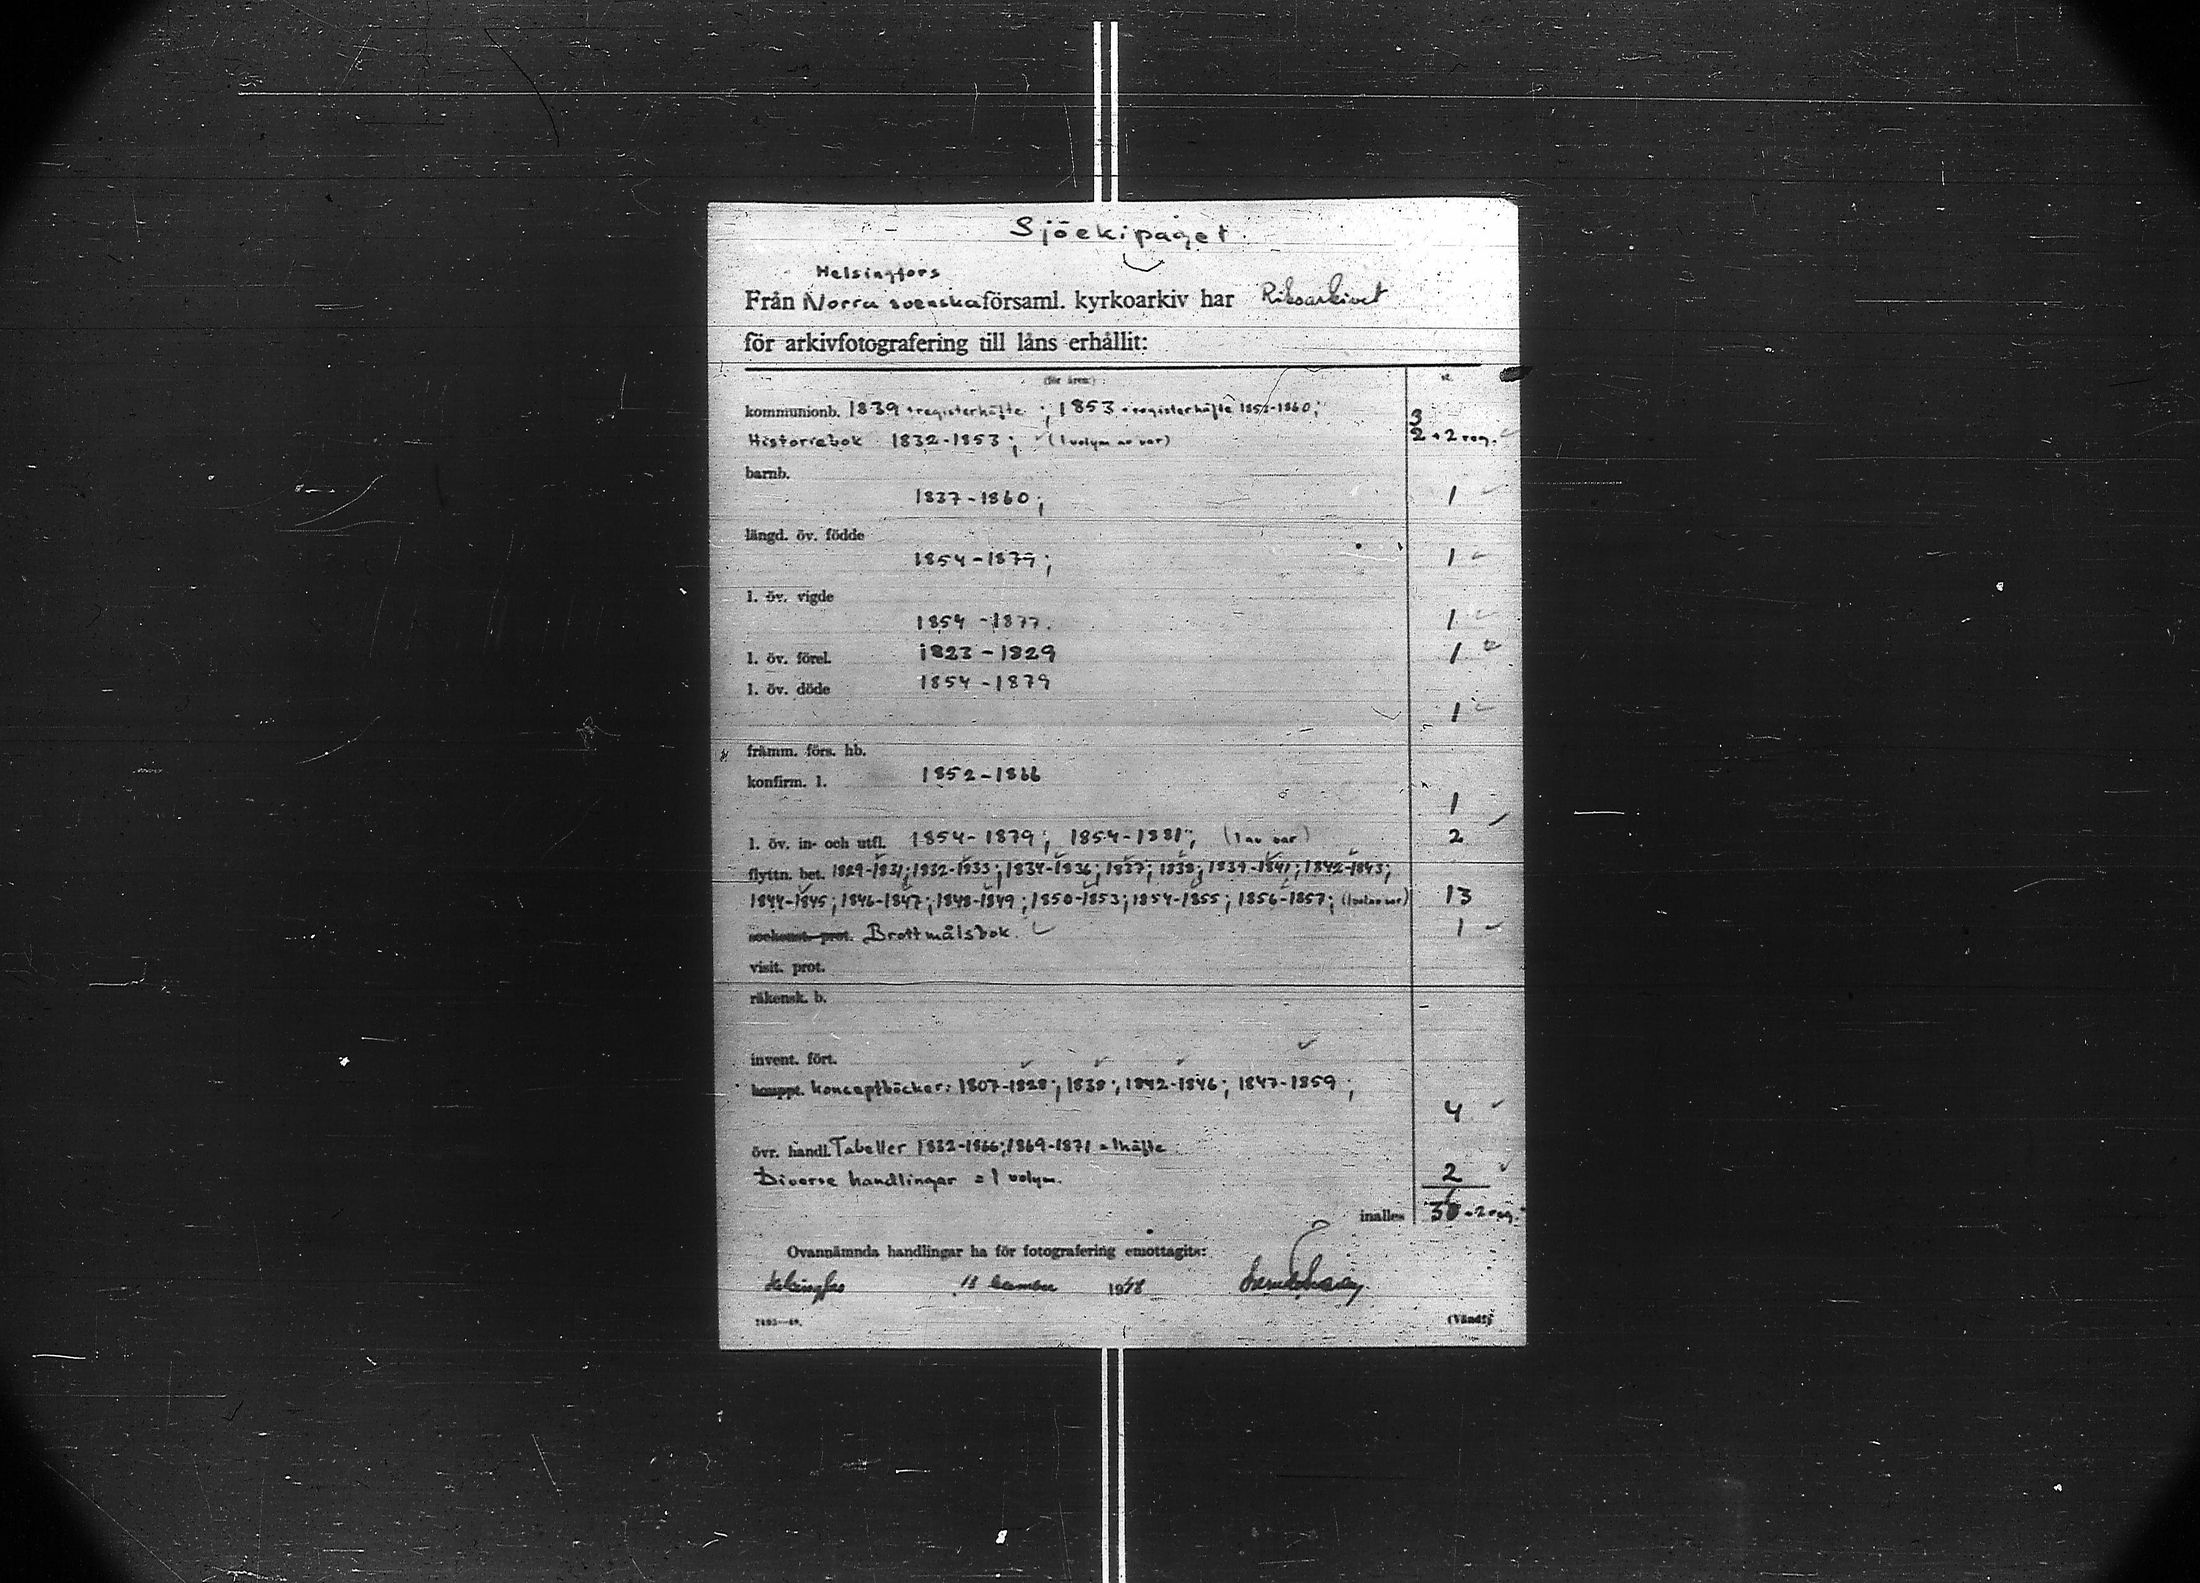 Sjöekipaget
Helsingfors
Från Norra svenska församl. kyrkoarkiv har Riksarkivet
för arkivfotografering till låns erhållit:
(för åren:) st.
kommunionb. 1839 + registerhäfte ; 1853 + registerhäfte 1853-1860; 3
Historiebok 1832-1853; (1 volym av var) 2 + 2 reg.
barnb.
1837-1860; 1
längd. öv. födde
1854-1879; 1
l. öv. vigde
1854-1877. 1
l. öv. förel. 1823-1829 1
l. öv. döde 1854-1879
1
främm. förs. hb.
konfirm. l. 1852-1866
1
l. öv. in- och utfl. 1854-1879; 1854-1881; (1 av var) 2
flyttn. bet. 1829-1831; 1832-1833; 1834-1836; 1837; 1838; 1839-1841; 1842-1843;
1844-1845; 1846-1847; 1848-1849; 1850-1853; 1854-1855; 1856-1857; (1 vol av var) 13
sockenst. prot. Brottmålsbok 1
visit. prot.
räkensk. b.
invent. fört.
konceptböcker: 1807-1828; 1838; 1842-1846; 1847-1859;
4
övr. handl. Tabeller 1832-1866; 1869-1871 = 1 häfte
Diverse handlingar = 1 volym. 2
inalles + 2 reg.
Ovannämnda handlingar ha för fotografering emottagits:
Helsingfors 18 1948
(Vänd!)